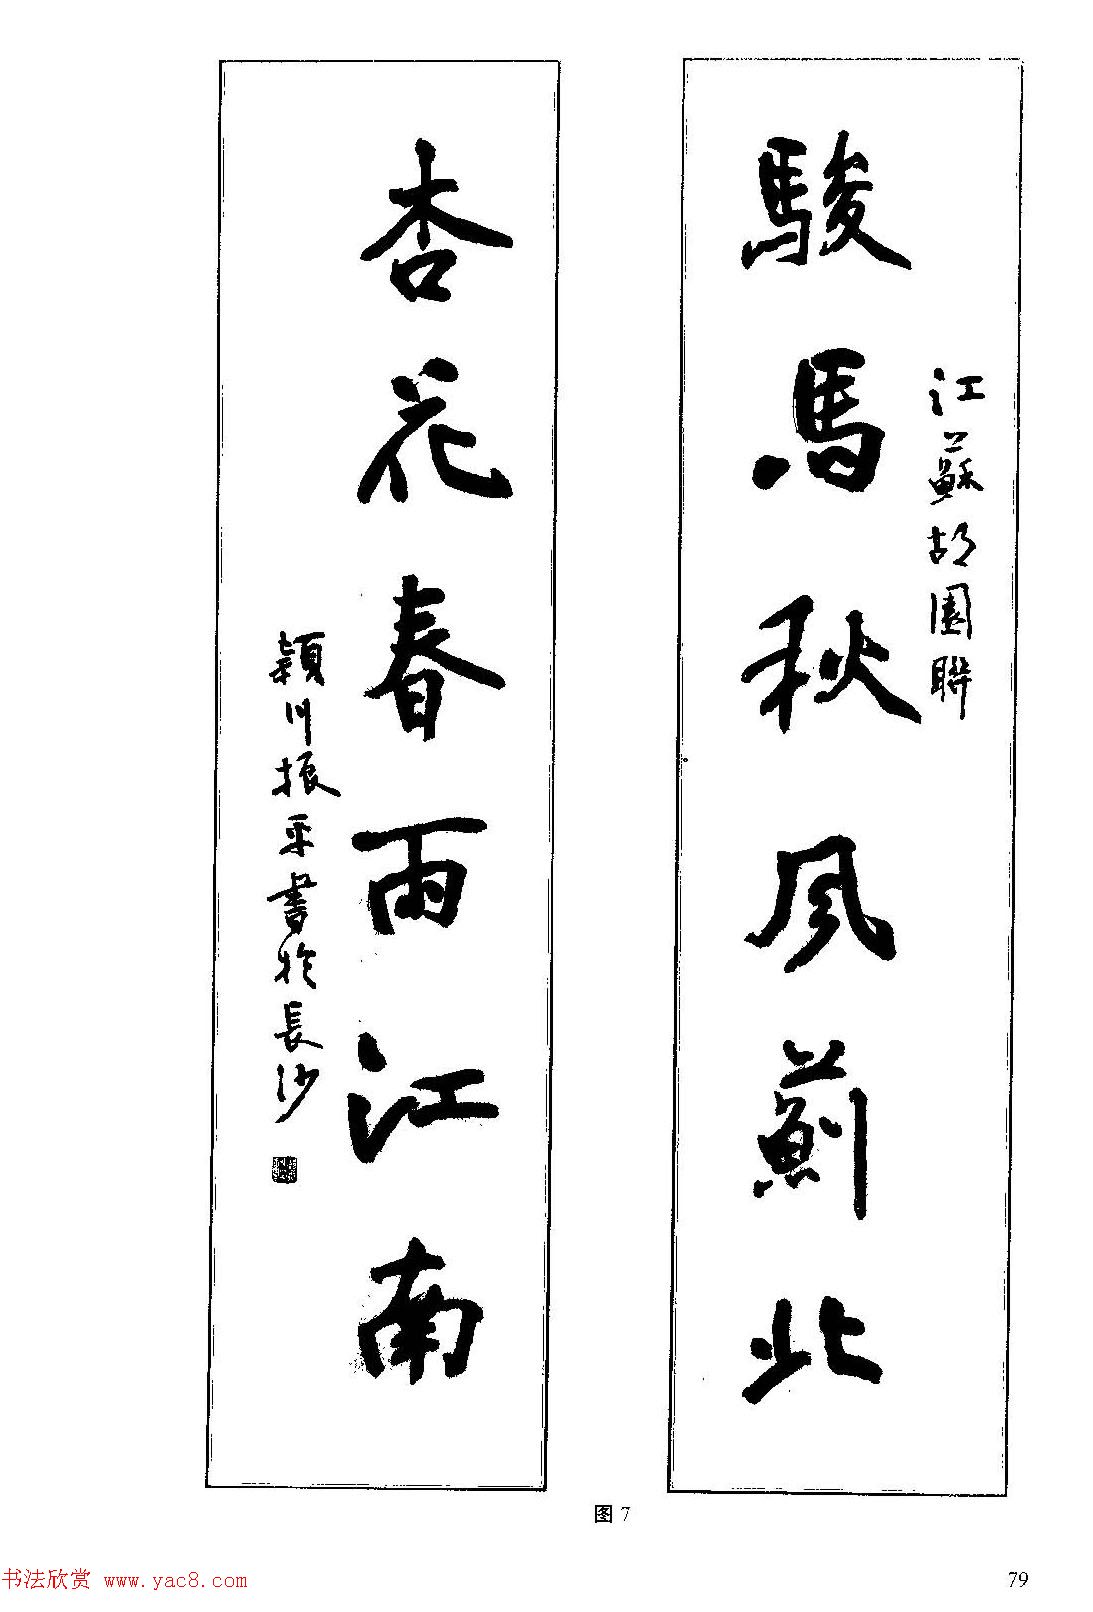 駿馬秋風薊北
江蘇胡園聯
杏花春雨江南
潁川振平書於長沙
图 7
书法欣赏 www.yac8.com
79